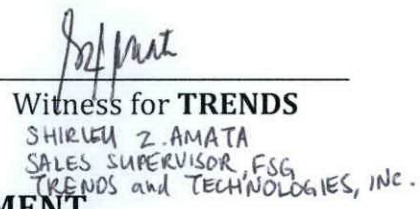 Witness for TRENDS
SHIRLEY Z. AMATA
SALES SUPERVISOR, FSG
TRENDS and TECHNOLOGIES, INC.
MENT